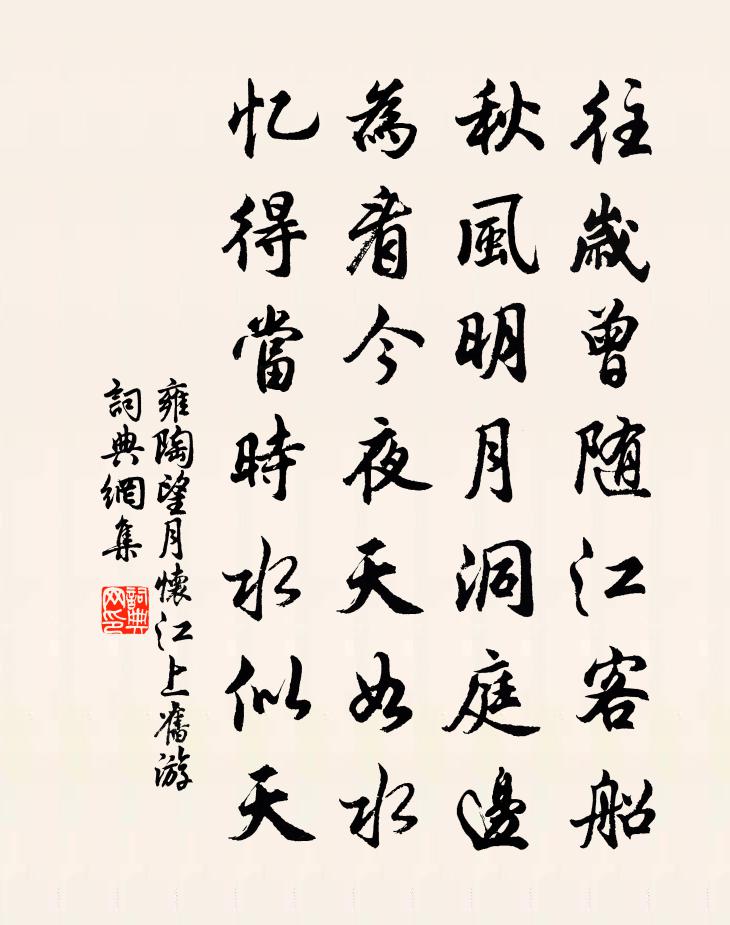 往歲曾随江客船
秋風明月洞庭邊
為看今夜天如水
忆得當時水似天
雍陶望月懷江上舊游
詞典網集
詞典网印